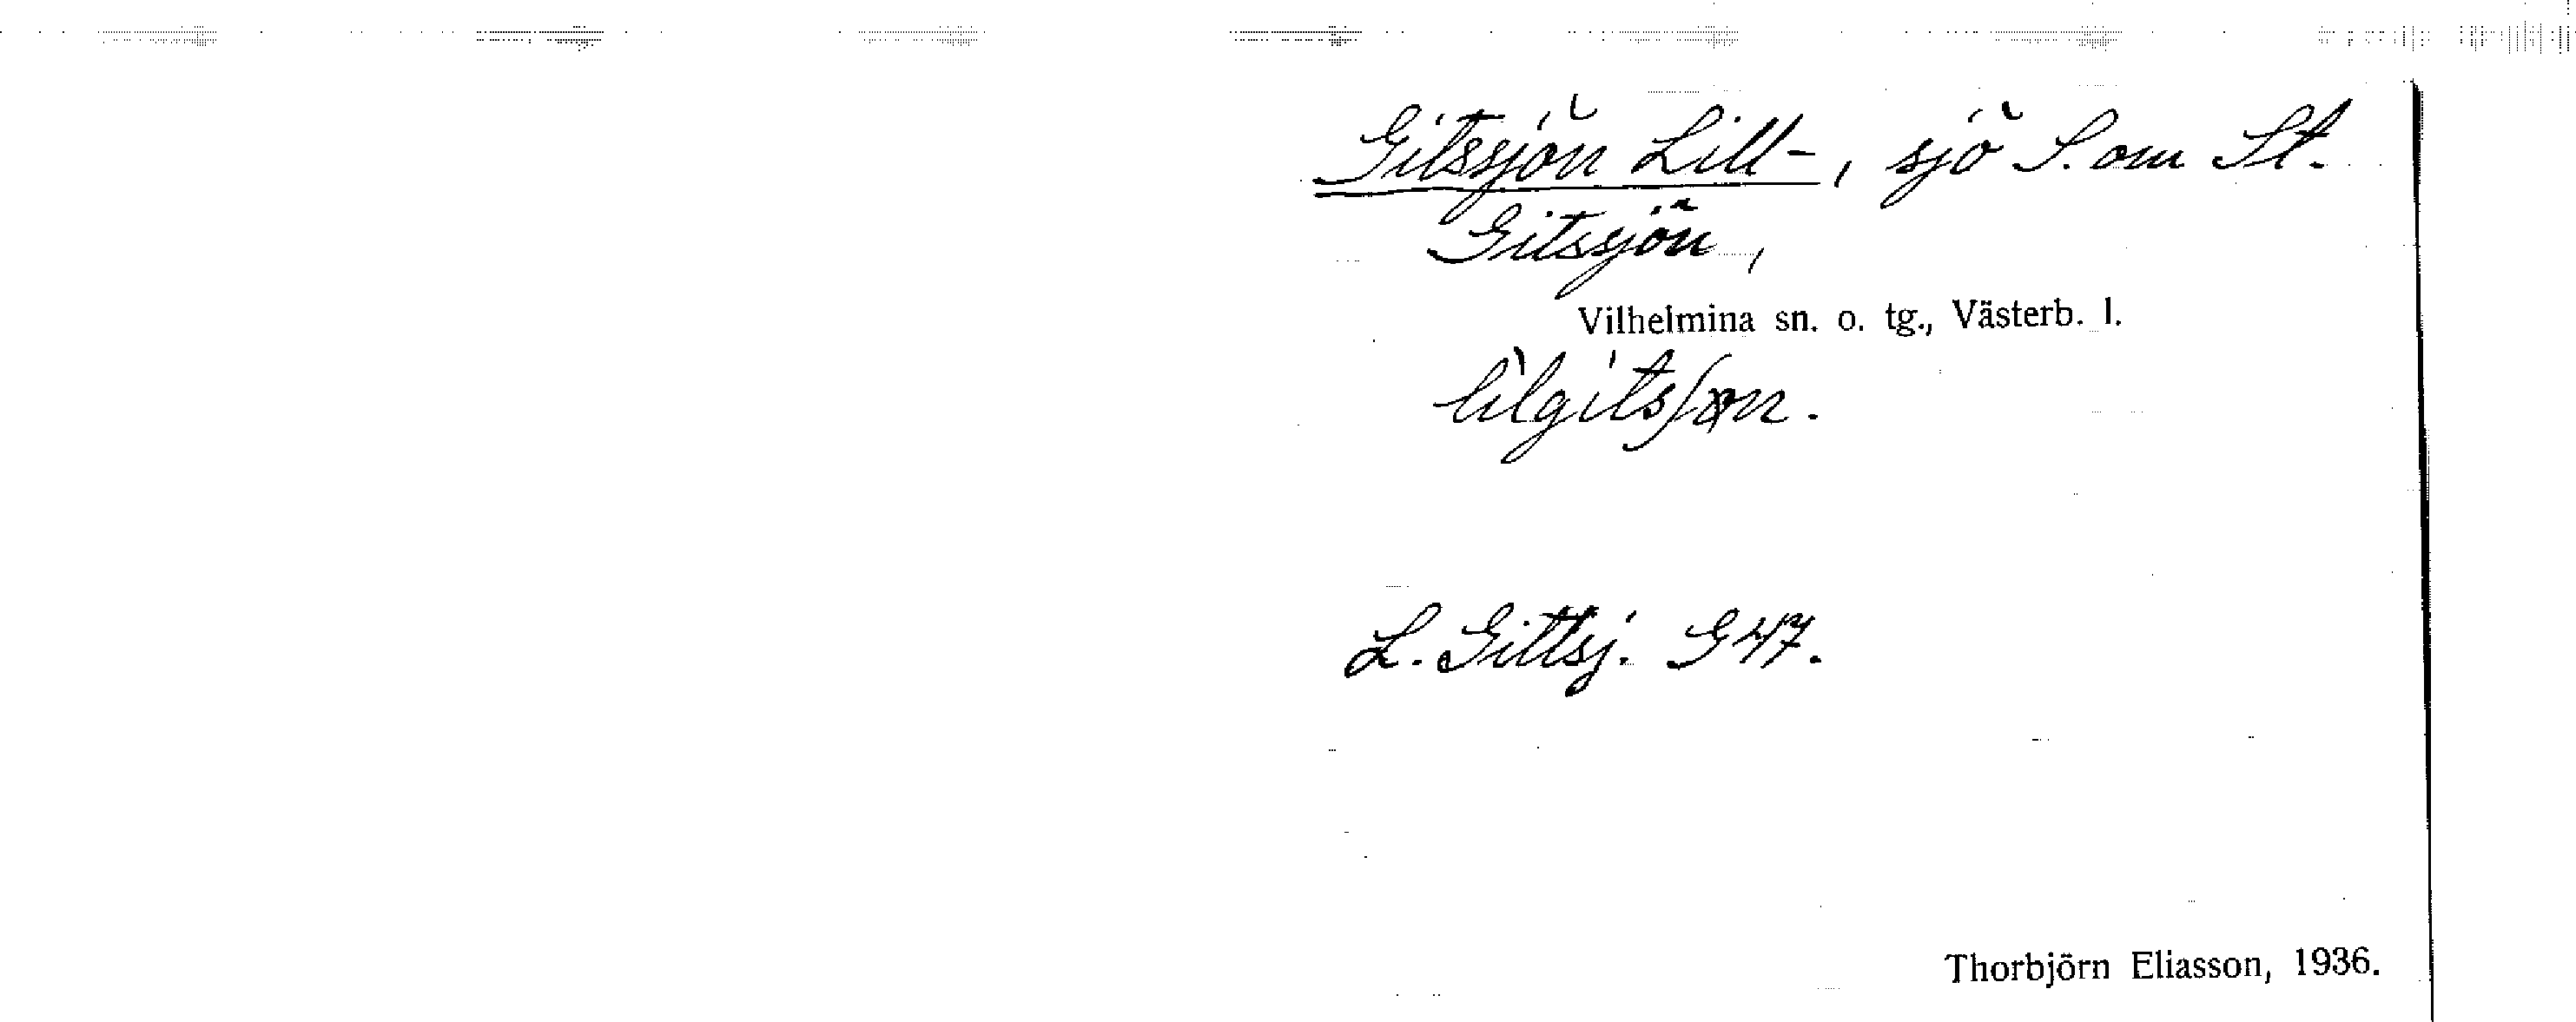 Gitssjön Lill-, sjö S. om St.
Gitssjön,
Vilhelmina sn. o. tg., Västerb. l.
L. Gittsj. G 47.
Thorbjörn Eliasson, 1936.